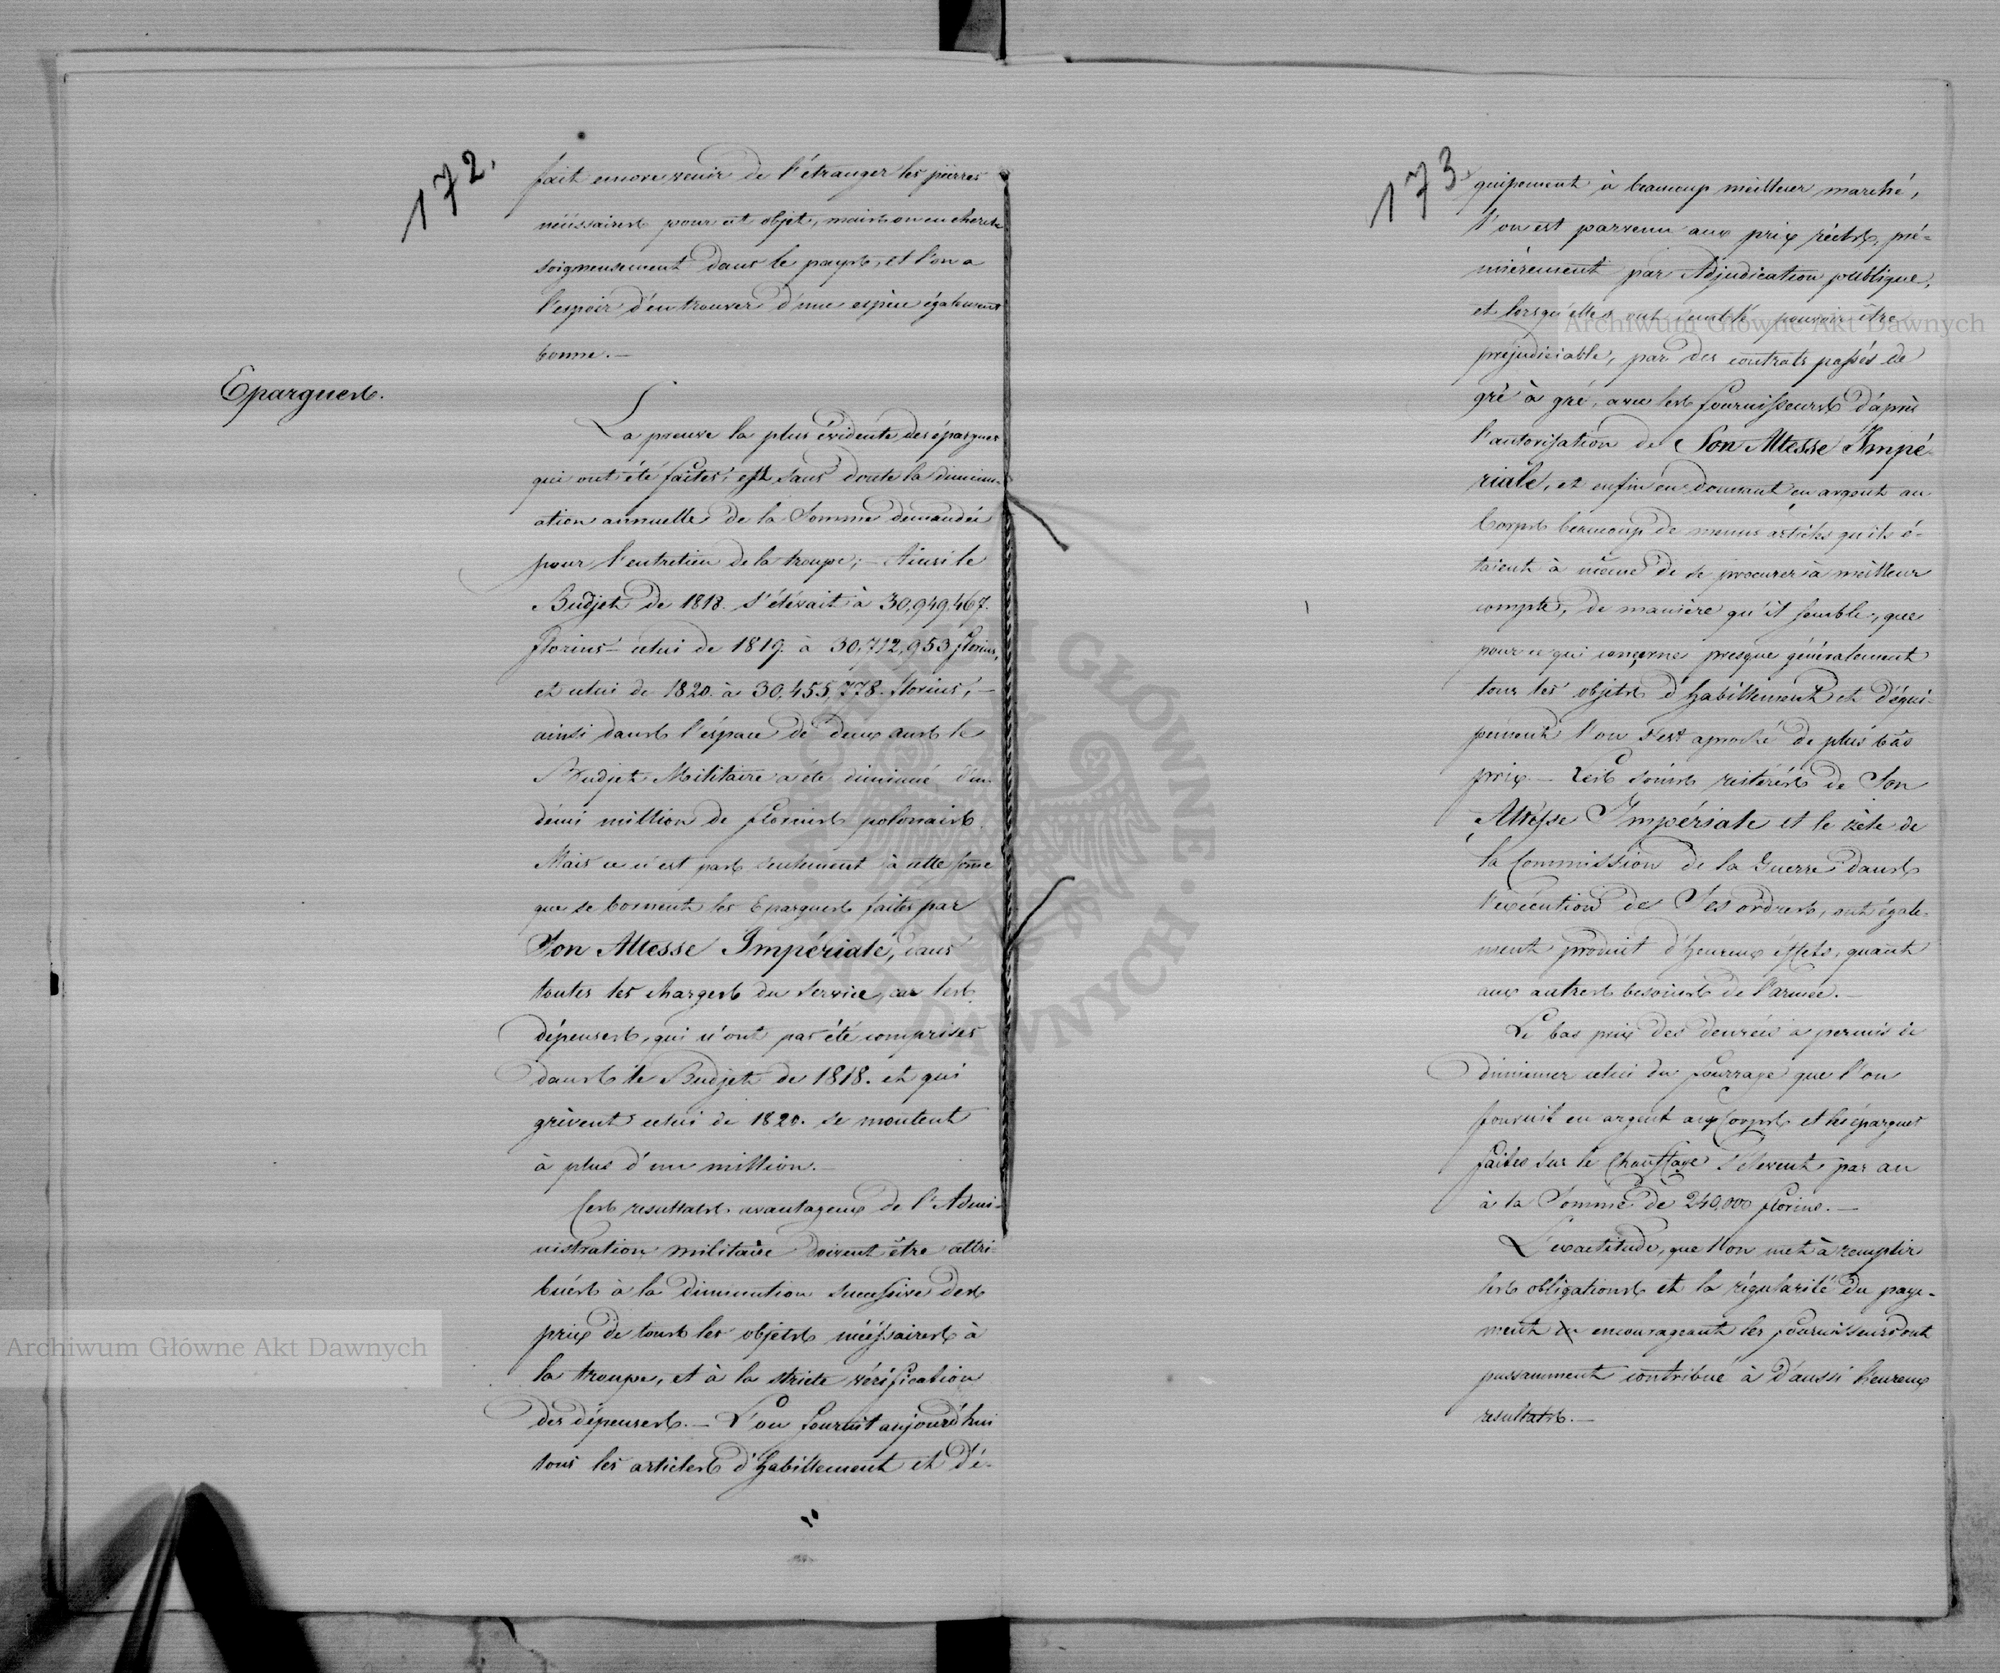 172.
fait encore venir de l'étranger les pierres
nécessaires pour cet objet, mais on en cherche
soigneusement dans le pays, et l'on a
l'espoir d'en trouver d'une espèce également
bonne.—
Epargnes.
La preuve la plus évidente des épargnes
qui ont été faites, est sans doute la diminu-
ation annuelle de la Somme demandée
pour l'entretien de la troupe; — Ainsi le
Budjet de 1818. s'élévait à 30,949,467.
florins — celui de 1819. à 30,712,953 florins,
et celui de 1820. à 30,455,778. florins, —
ainsi dans l'éspace de deux ans le
Budjet Militaire a été diminué d'un
démi million de florins polonais.
Mais ce n'est pas seulement à cette somme
que se bornent les Epargnes faites par
Son Altesse Impériale, dans
toutes les charges du service, car les
dépenses, qui n'ont pas été comprises
dans le Budjet de 1818. et qui
grèvent celui de 1820. se montent
à plus d'un million.—
Ces resultats avantageux de l'Admi-
nistration militaire doivent être attri-
bués à la diminution successive des
prix de tous les objets nécéssaires à
la troupe, et à la stricte vérification
des dépenses.— L'on fournit aujourd'hui
tous les articles d'habillement et d'é-
173.
quipement à beaucoup meilleur marché,
l'on est parvenu aux prix réels, pré-
mièrement par Adjudication publique,
et lorsqu'elles ont semblé pouvoir être
prejudiciable, par des contrats passés de
gré à gré, avec les fournisseurs d'après
l'autorisation de Son Altesse Impé-
riale, et enfin en donnant en argent au
Corps beaucoup de menus articles qu'ils é-
taient à même de se procurer à meilleur
compte, de manière qu'il semble, que
pour ce qui concerne presque généralement
tous les objets d'habillement et d'équi-
pement l'on s'est aproché de plus bas
prix — Les soins reitérés de Son
Altesse Impériale et le zèle de
la Commission de la Guerre dans
l'exécution de Ses ordres, ont égale-
ment produit d'heureux éffets, quant
aux autres besoins de l'armée.—
Le bas prix des denrées a permis de
diminuer celui du fourrage que l'on
fournit en argent aux Corps et les épargnes
faites sur le Chauffage s'élevent par an
à la Somme de 240,000 florins.—
L'exactitude, que l'on met à remplir
les obligations et la régularité du paye-
ment en encourageant les fournisseurs ont
puissamment contribué à d'aussi heureux
resultats.—
Archiwum Główne Akt Dawnych
Archiwum Główne Akt Dawnych
· ARCHIWUM GŁÓWNE · AKT DAWNYCH